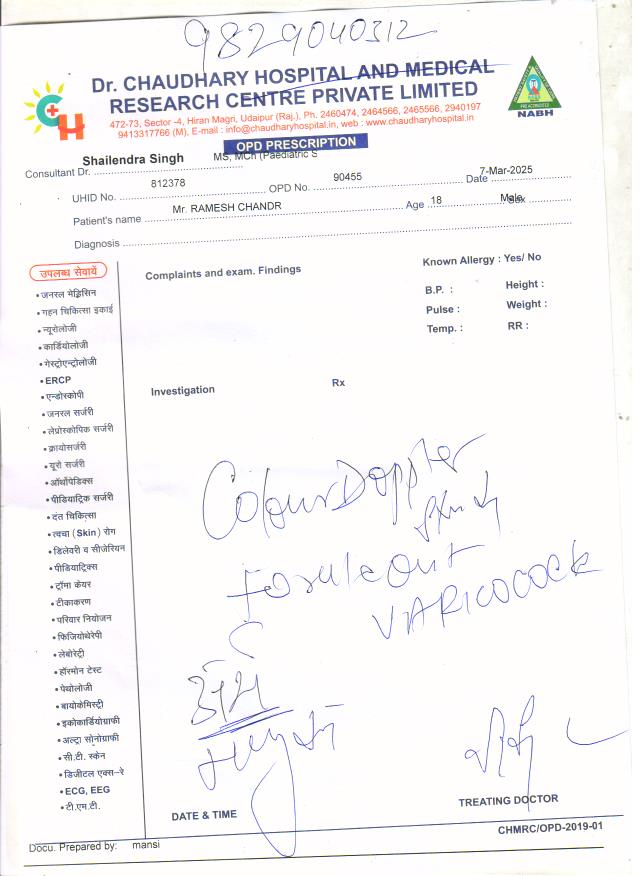 9829040312
Dr. CHAUDHARY HOSPITAL AND MEDICAL
RESEARCH CENTRE PRIVATE LIMITED
472-73, Sector -4, Hiran Magri, Udaipur (Raj.), Ph. 2460474, 2464566, 2465566, 2940197
9413317766 (M), E-mail : info@chaudharyhospital.in, web : www.chaudharyhospital.in
CH
NABH
OPD PRESCRIPTION
Consultant Dr. Shailendra Singh MS, MCh (Paediatric S
UHID No. 812378 OPD No. 90455 Date 7-Mar-2025
Patient's name Mr. RAMESH CHANDR Age 18 Sex Male
Diagnosis
उपलब्ध सेवायें
• जनरल मेडिसिन
• गहन चिकित्सा इकाई
• न्यूरोलोजी
• कार्डियोलोजी
• गेस्ट्रोएन्ट्रोलोजी
• ERCP
• एन्डोस्कोपी
• जनरल सर्जरी
• लेप्रोस्कोपिक सर्जरी
• क्रायोसर्जरी
• यूरो सर्जरी
• ऑर्थोपेडिक्स
• पीडियाट्रिक सर्जरी
• दंत चिकित्सा
• त्वचा (Skin) रोग
• डिलेवरी व सीजेरियन
• पीडियाट्रिक्स
• ट्रॉमा केयर
• टीकाकरण
• परिवार नियोजन
• फिजियोथेरेपी
• लेबोरेट्री
• हॉरमोन टेस्ट
• पेथोलोजी
• बायोकेमिस्ट्री
• इकोकार्डियोग्राफी
• अल्ट्रा सोनोग्राफी
• सी.टी. स्केन
• डिजीटल एक्स-रे
• ECG, EEG
• टी.एम.टी.
Complaints and exam. Findings
Known Allergy : Yes/ No
B.P. : Height :
Pulse : Weight :
Temp. : RR :
Investigation Rx
Colour Doppler
to rule out
VARICOCOCK
DATE & TIME
TREATING DOCTOR
CHMRC/OPD-2019-01
Docu. Prepared by: mansi